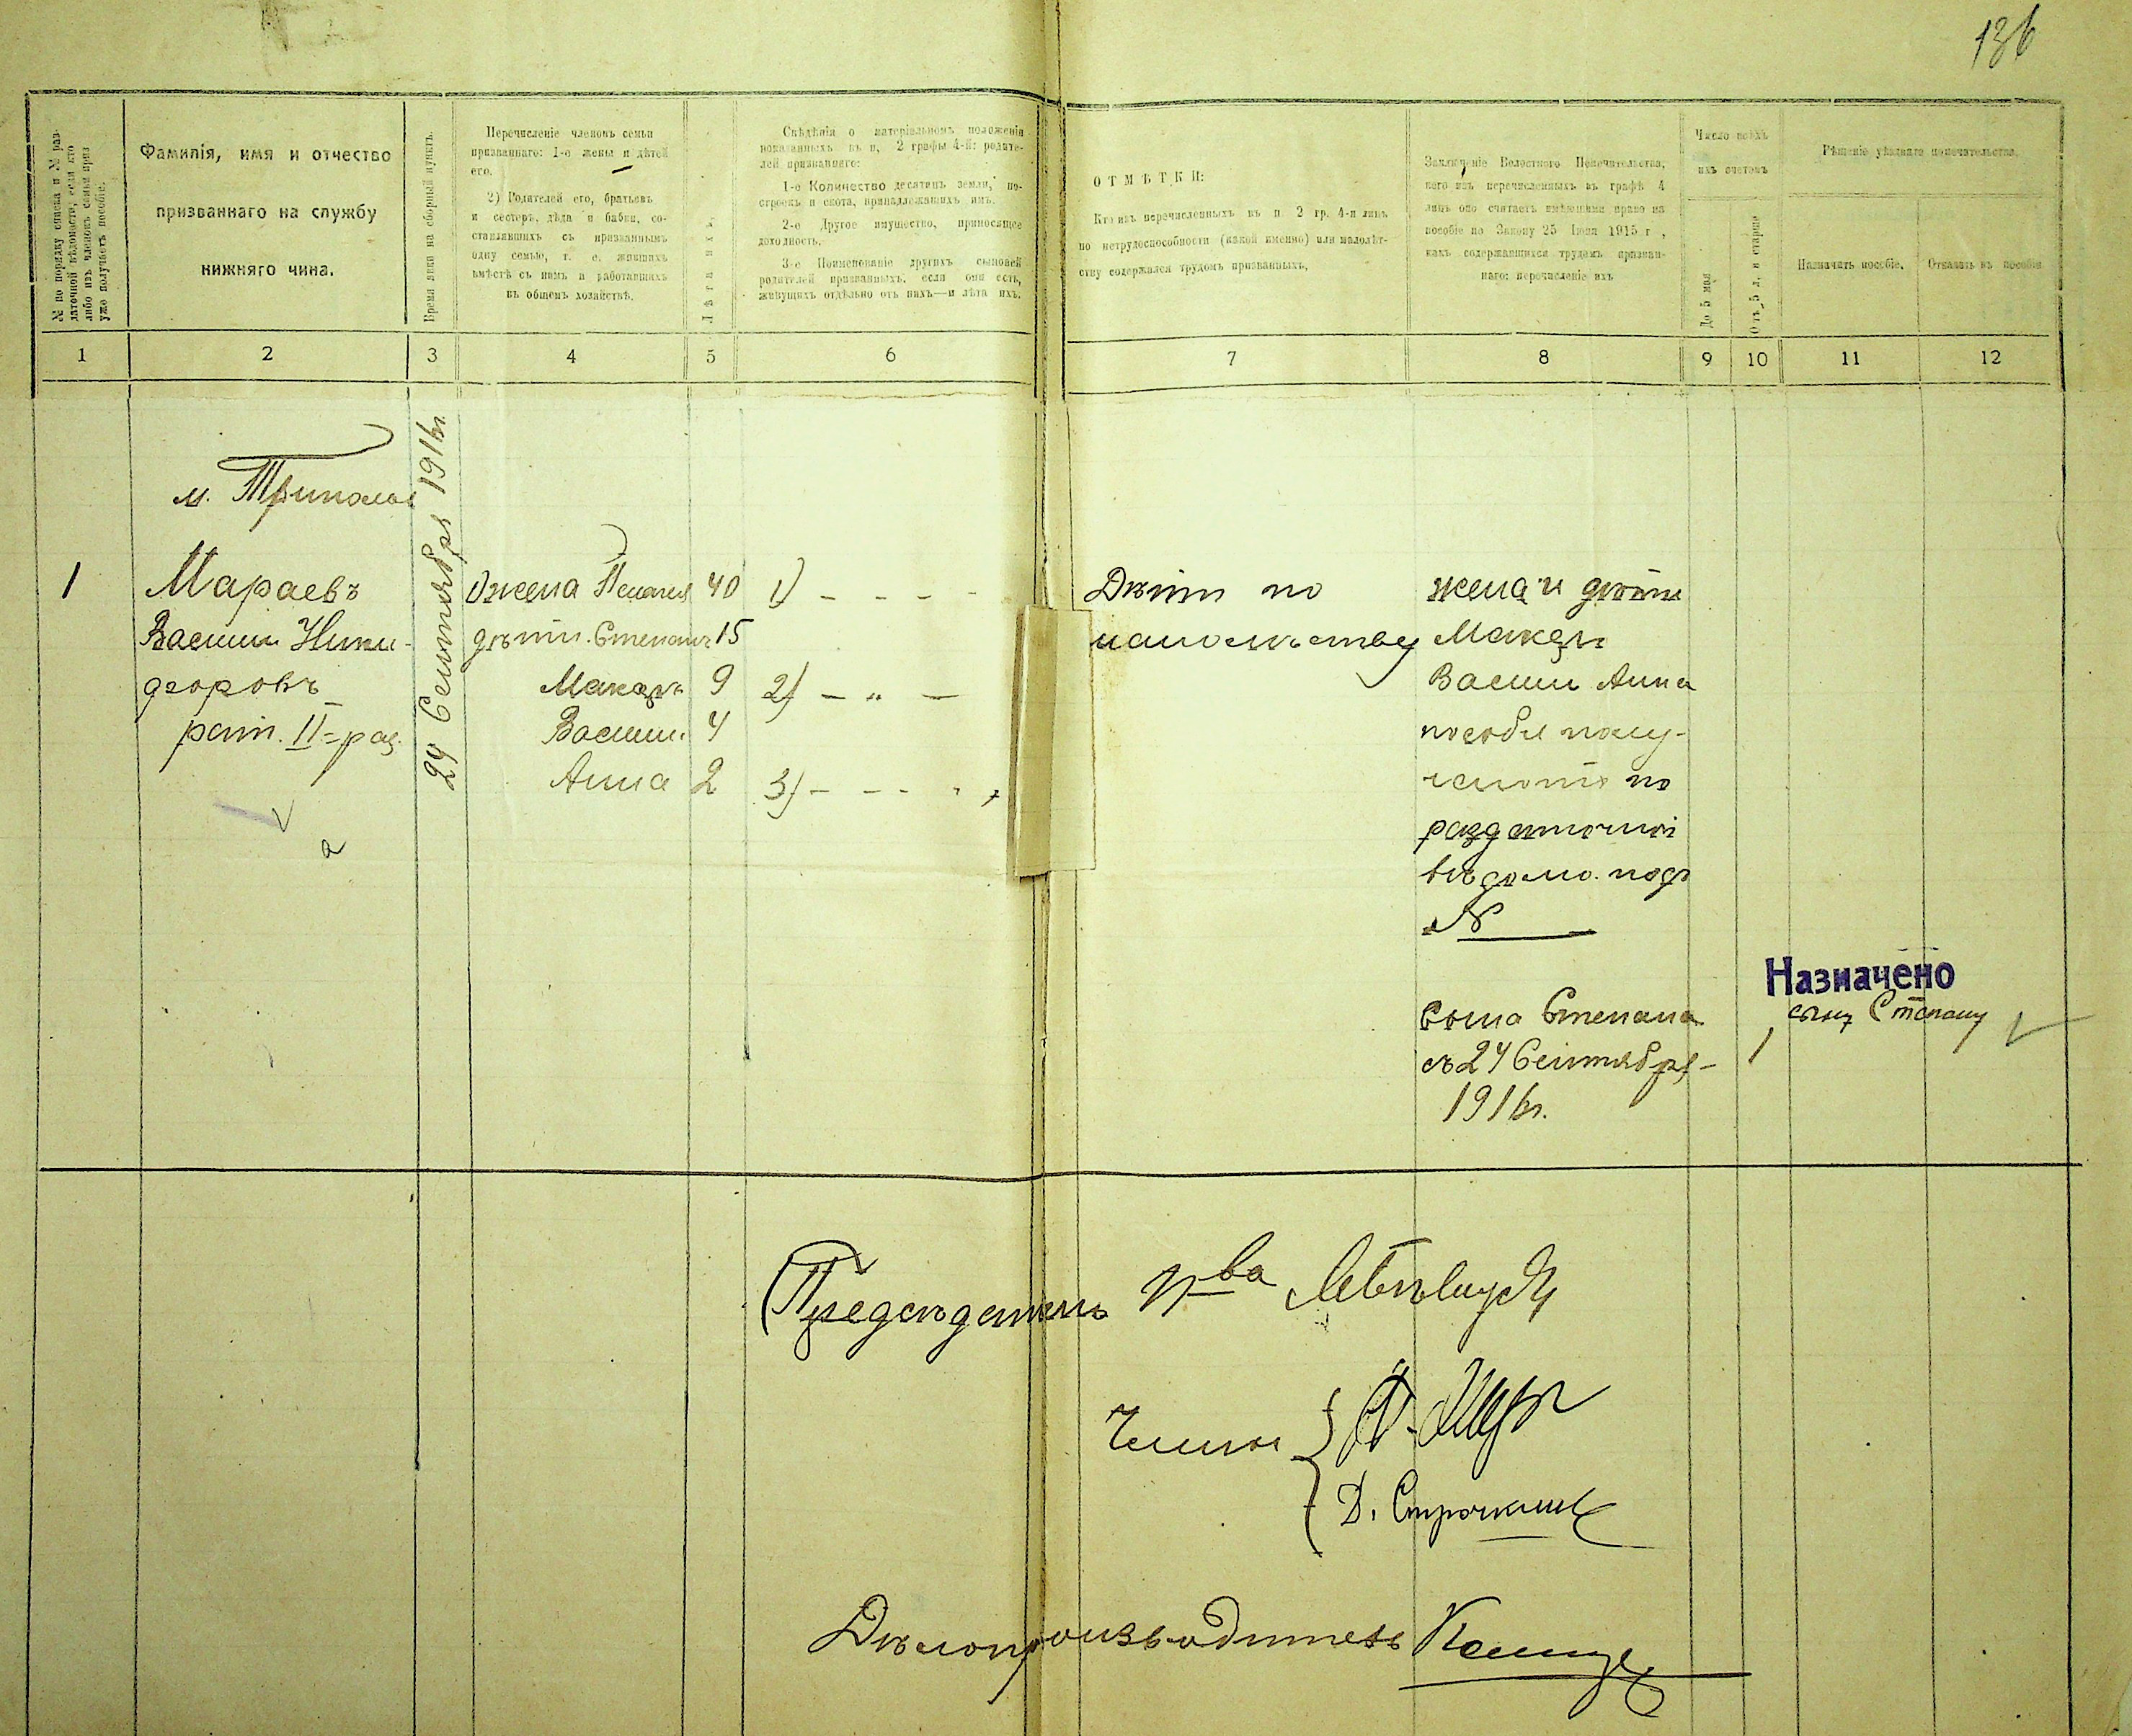 136
№ по порядку списка и № раз-
даточной вѣдомости, если кто
либо изъ членовъ семьи приз
уже получаетъ пособіе.
Фамилія, имя и отчество
призваннаго на службу
нижняго чина.
Время явки на сборный пунктъ.
Перечисленіе членовъ семьи
призваннаго: 1-е жены и дѣтей
его.
2) Родителей его, братьевъ
и сестеръ, дѣда и бабки, со-
ставлявшихъ съ призваннымъ
одну семью, т. е. жившихъ
вмѣстѣ съ нимъ и работавшихъ
въ общемъ хозяйствѣ.
Лѣта ихъ.
Свѣдѣнія о матеріальномъ положеніи
показанныхъ въ п. 2 графы 4-й: родите-
лей призваннаго:
1-е Количество десятинъ земли, по-
строекъ и скота, принадлежащихъ имъ.
2-е Другое имущество, приносящее
доходность.
3-е Поименованіе другихъ сыновей
родителей призванныхъ, если они есть,
живущихъ отдѣльно отъ нихъ—и лѣта ихъ.
ОТМѢТКИ:
Кто изъ перечисленныхъ въ п. 2 гр. 4-й лицъ
по нетрудоспособности (какой именно) или малолѣт-
ству содержался трудомъ призванныхъ.
Заключеніе Волостного Попечительства,
кого изъ перечисленныхъ въ графѣ 4
лицъ оно считаетъ имѣющими право на
пособіе по Закону 25 Іюня 1915 г.,
какъ содержавшихся трудомъ призван-
наго: перечисленіе ихъ
Число всѣхъ
ихъ
До 5
Отъ 5 л. и старше
Рѣшеніе уѣзднаго попечительства.
Назначать пособіе.
Отказать въ пособіи
1 2 3 4 5 6 7 8 9 10 11 12
м. Триполье
24 Сентября 1916г.
1 Мараевъ 1) жена Пелагея 40 1) - - - - Дѣти по жена и дѣти
Василій Ники- дѣти. Степанъ 15 малолѣтству Макаръ
доровъ Макаръ 9 2) - " - Василій Анна
рат. II = раз. Василій 4 пособіе полу-
Анна 2 3) - - - чаютъ по
раздаточной
вѣдомо. подъ
№
Назначено
сыну Степану
Сына Степана 1
съ 24 Сентября -
1916г.
Предсѣдатель П-ва
Члены
Д.
Дѣлопроизводитель